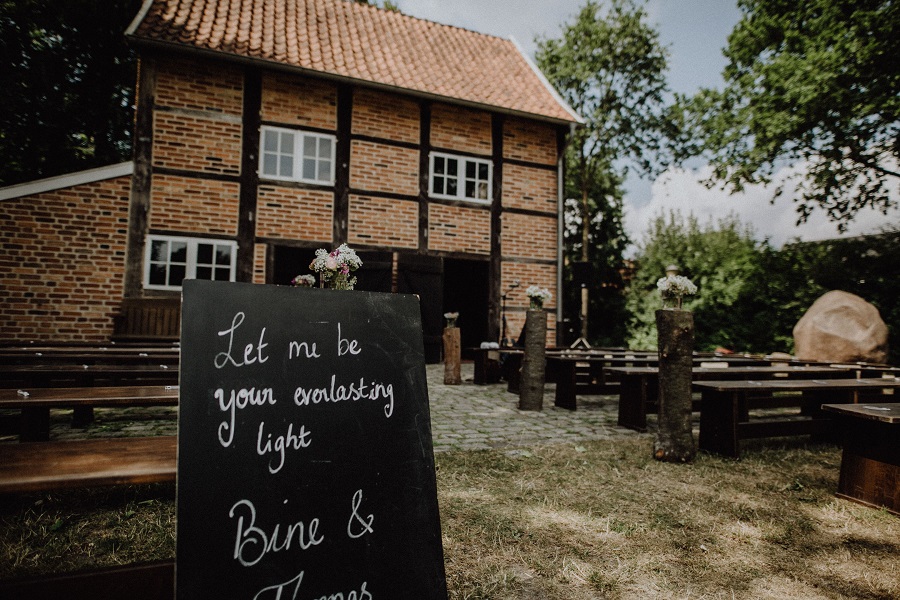 Let me be
your everlasting
light
Bine &
Thomas